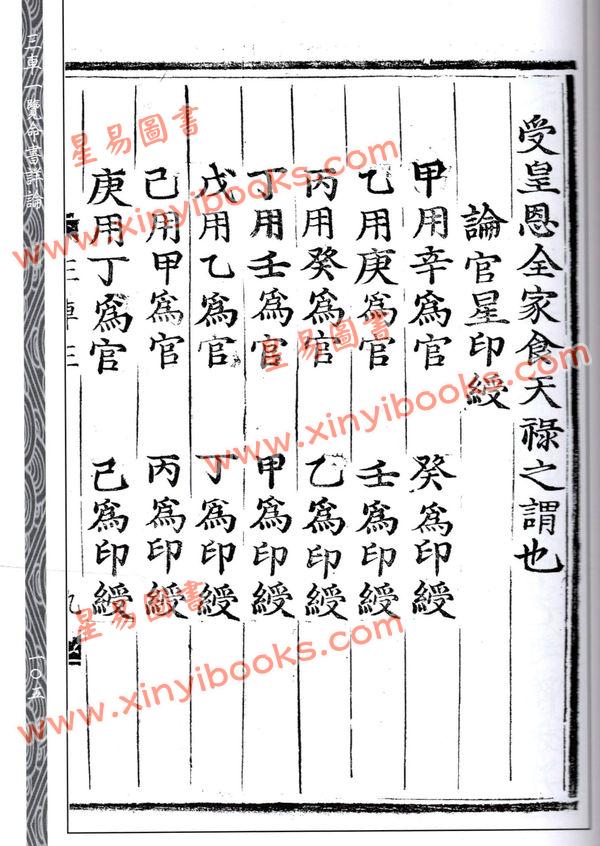 受皇恩全家食天祿之謂也
論官星印綬
甲用辛爲官 癸爲印綬
乙用庚爲官 壬爲印綬
丙用癸爲官 乙爲印綬
丁用壬爲官 甲爲印綬
戊用乙爲官 丁爲印綬
己用甲爲官 丙爲印綬
庚用丁爲官 己爲印綬
三車一覽命書詳論
一〇五
星易圖書
www.xinyibooks.com
星易圖書
www.xinyibooks.com
星易圖書
www.xinyibooks.com